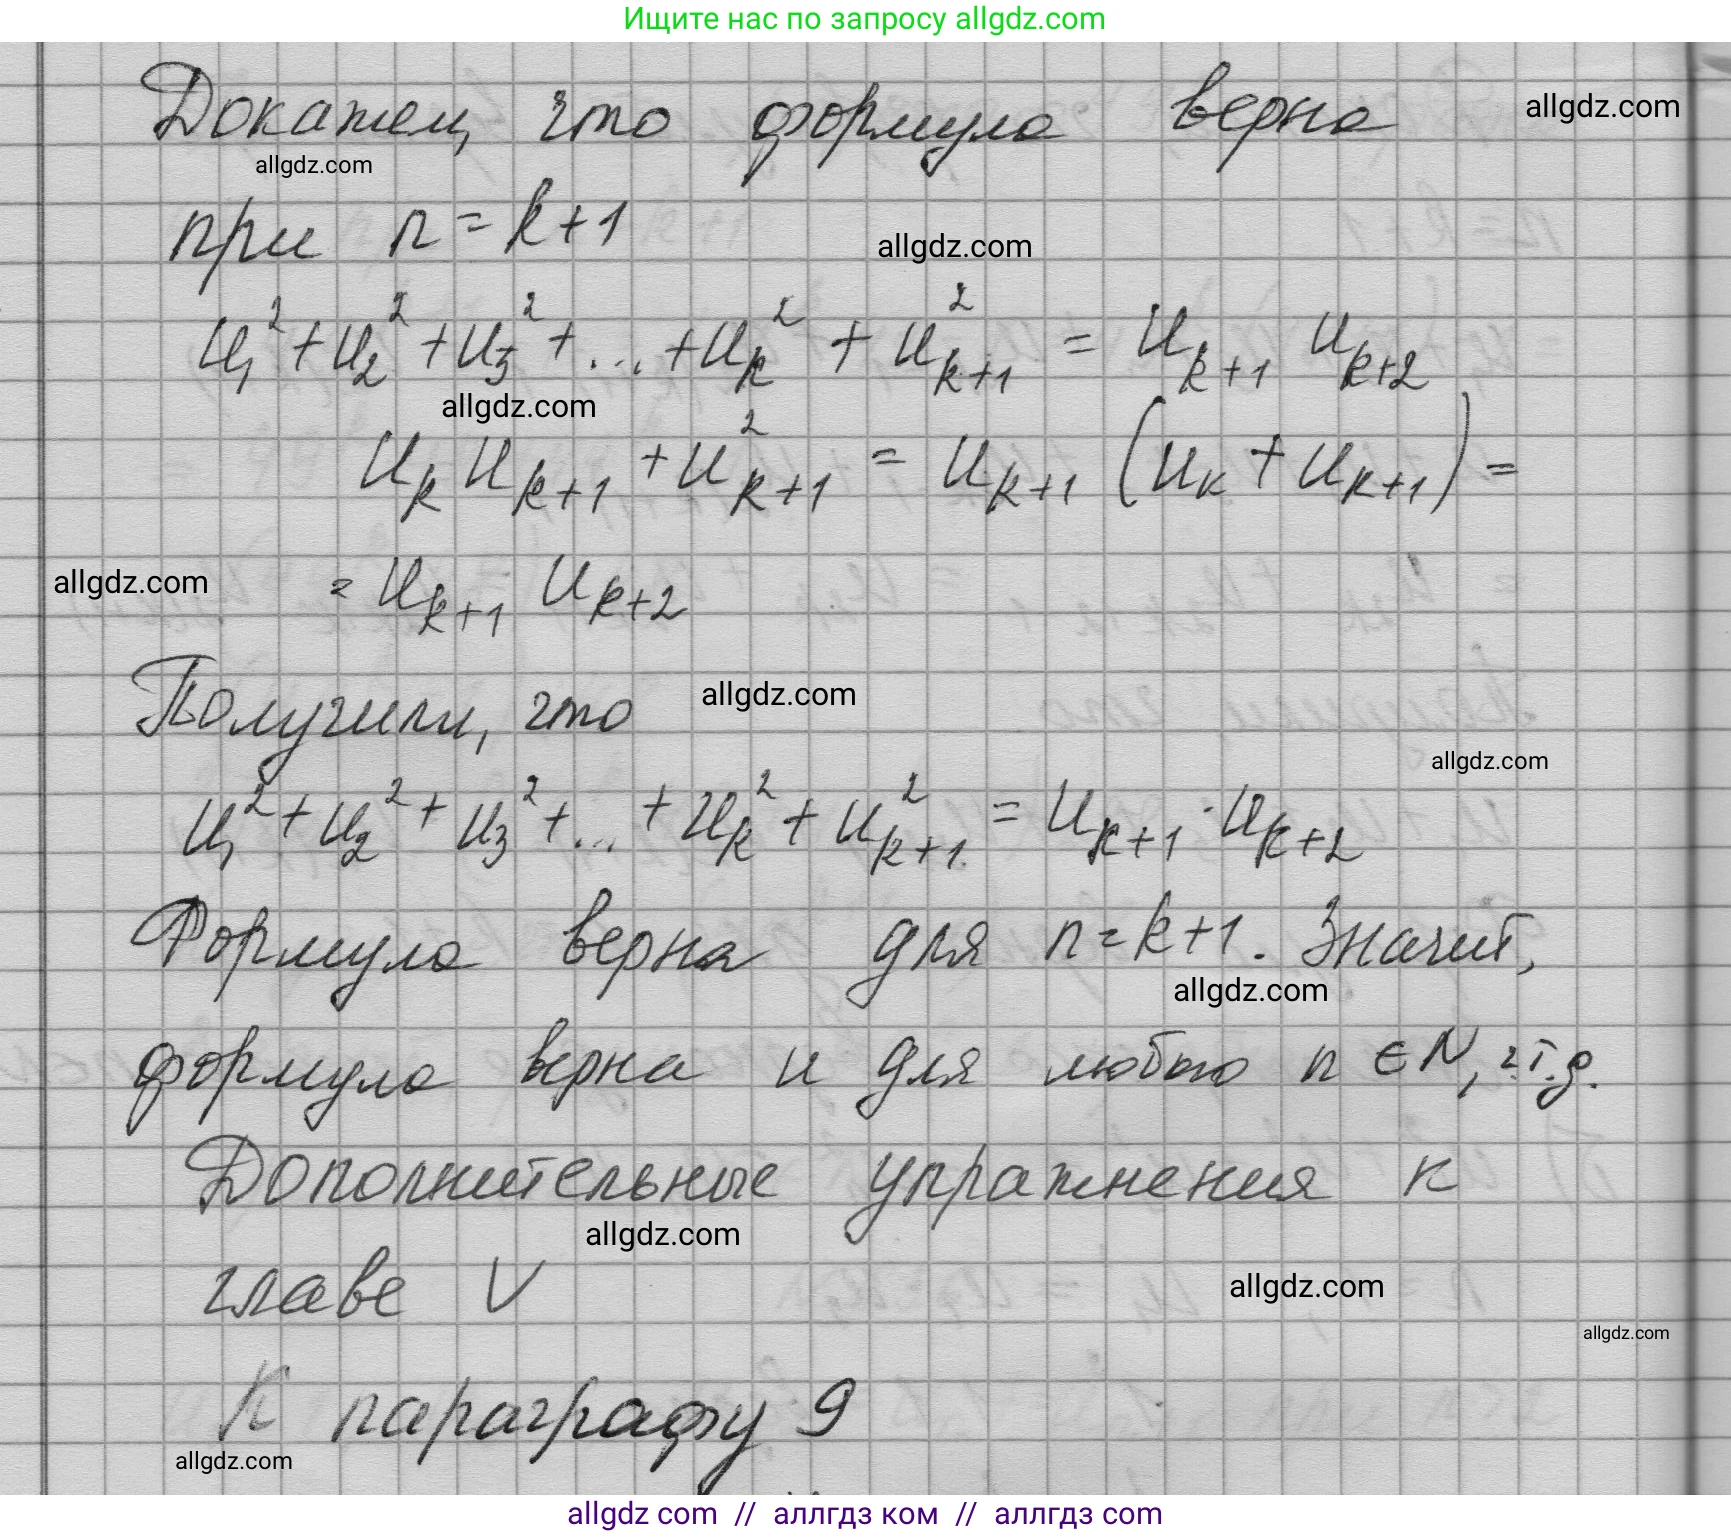 Ищите нас по запросу allgdz.com
Докажем, что формула верна allgdz.com
allgdz.com
при n = k+1 allgdz.com
u₁² + u₂² + u₃² + ... + u_k² + u_{k+1}² = u_{k+1} u_{k+2}
allgdz.com
u_k u_{k+1} + u_{k+1}² = u_{k+1} (u_k + u_{k+1}) =
allgdz.com = u_{k+1} u_{k+2}
Получили, что allgdz.com
allgdz.com
u₁² + u₂² + u₃² + ... + u_k² + u_{k+1}² = u_{k+1} · u_{k+2}
Формула верна для n = k+1. Значит,
allgdz.com
формула верна и для любого n ∈ N, ч.т.д.
Дополнительные упражнения к
allgdz.com
главе V allgdz.com
allgdz.com
К параграфу 9
allgdz.com
allgdz com // аллгдз ком // allgdz com